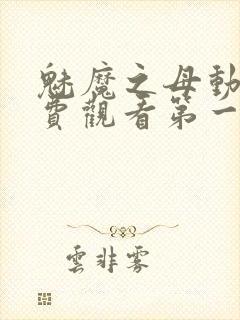 魅魔之母動
費觀看第一
雲非雾